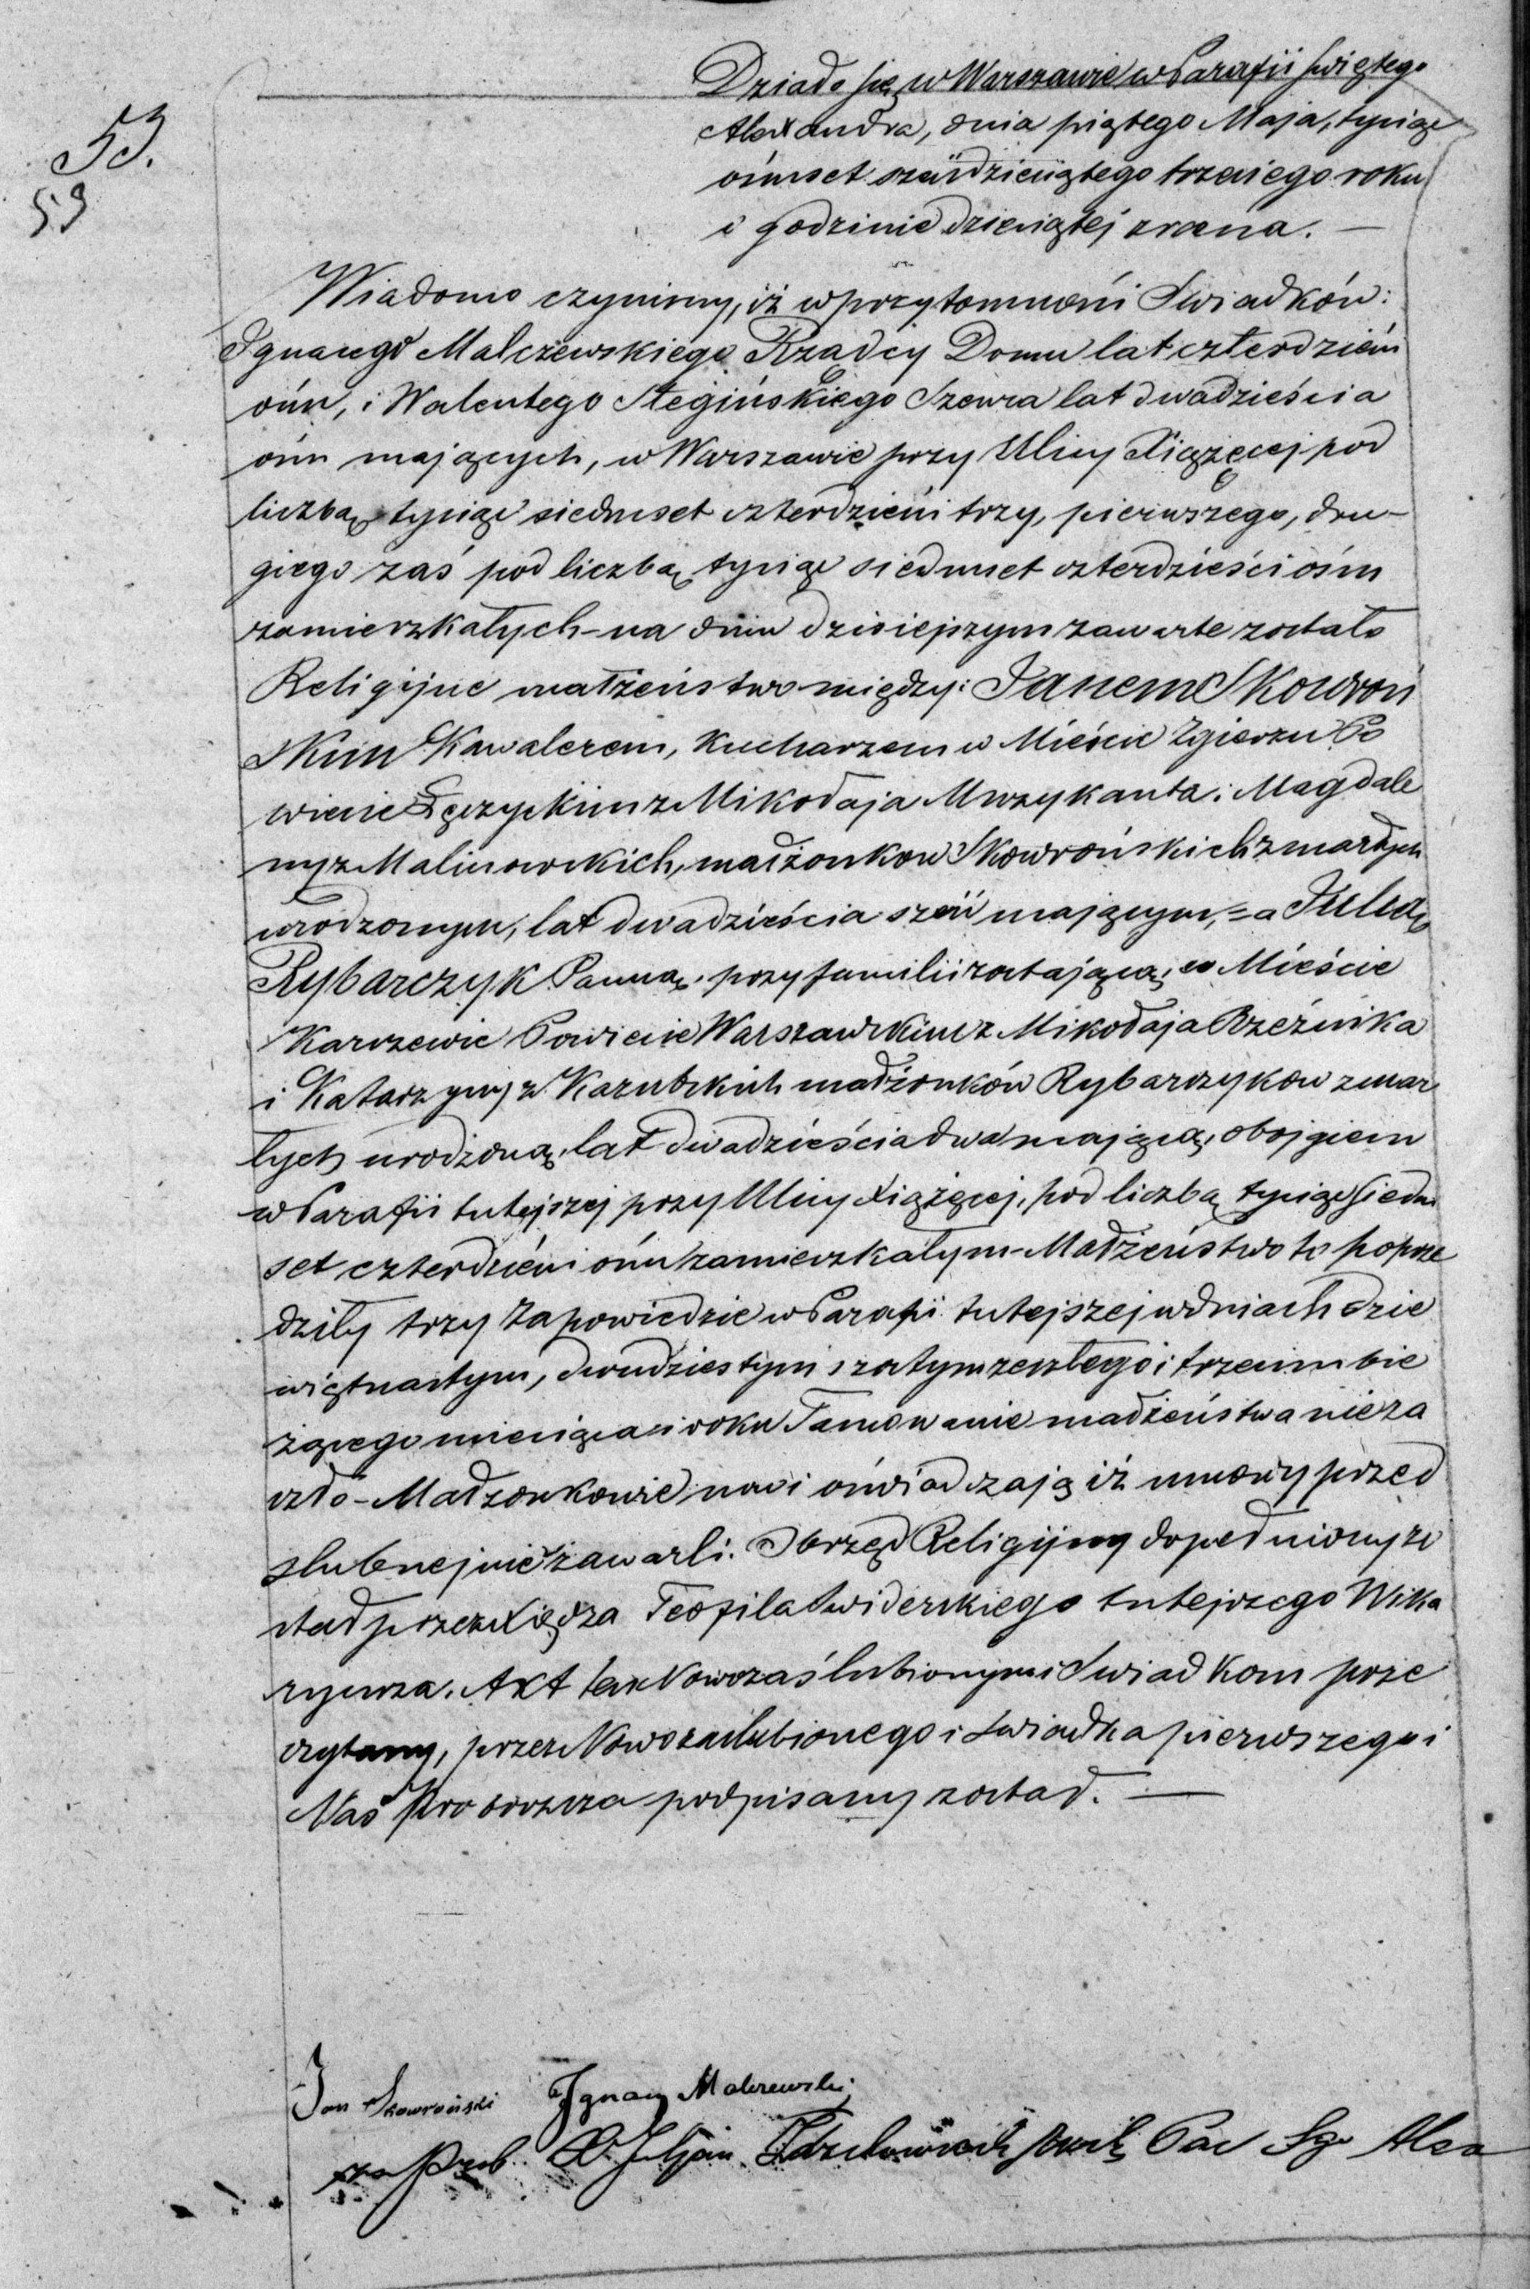 53.
59
Działo się w Warszawie w Parafii Świętego
Alexandra, dnia piątego Maja, tysiąc
ośmset sześdziesiątego trzeciego roku
o godzinie dziesiątej zrana. —
Wiadomo czyniemy, iż w przytomności Świadków:
Ignacego Malczewskiego Rządcy Domu lat czterdzieści
ośm, i Walentego Stegińskiego Szewca lat dwadzieścia
ośm mających, w Warszawie przy Ulicy Xiążęcej pod
liczbą tysiąc siedmset czterdzieści trzy, pierwszego, dru-
giego zaś pod liczbą tysiąc siedmset czterdzieści ośm
zamieszkałych – na dniu dzisiejszym zawarte zostało
Religijne małżeństwo między: Janem Skowroń
skim Kawalerem, Kucharzem w Mieście Zgierzu Po
wiecie Łęczyckim z Mikołaja Muzykanta i Magdale
ny z Malinowskich, małżonków Skowrońskich zmarłych
urodzonym, lat dwadzieścia sześć mającym, = a Julią
Rybarczyk Panną, przy familii zostającą, w Mieście
Karczewie Powiecie Warszawskim z Mikołaja Rzeźnika
i Katarzyny z Kazubskich małżonków Rybarczyków zmar
łych urodzoną, lat dwadzieścia dwa mającą, obojgiem
w Parafii tutejszej przy Ulicy Xiążęcej, pod liczbą tysiąc siedm
set czterdzieści ośm zamieszkałym – Małżeństwo to poprze
dziły trzy Zapowiedzie w Parafii tutejszej w dniach dzie
więtnastym, dwudziestym szóstym zeszłego i trzecim bie
żącego miesiąca i roku Tamowanie małżeństwa nie za
szło – Małżonkowie nowi oświadczają iż umowy przed
ślubnej nie zawarli. Obrzęd Religijny dopełniony zo
stał przez Xiędza Teofila Świderskiego tutejszego Wika
ryusza. Akt ten Nowozaślubionym i Świadkom prze
czytany, przez Nowozaślubionego i świadka pierwszego i
Nas Proboszcza podpisany został. —
Jan Skowroński Ignacy Malczewski
za Prob. X. Juljan Par Sgo Alex